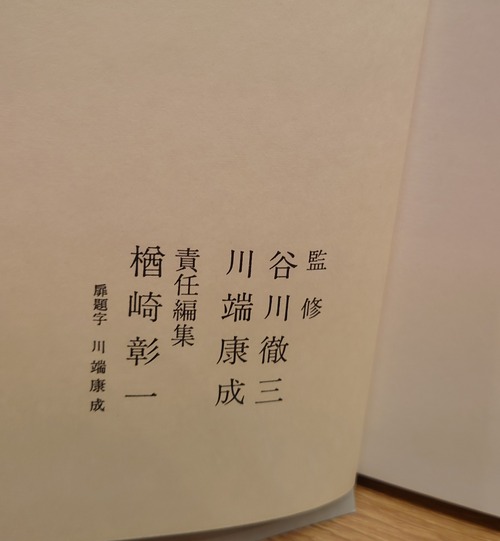 監修
谷川徹三
川端康成
責任編集
楢崎彰一
扉題字 川端康成